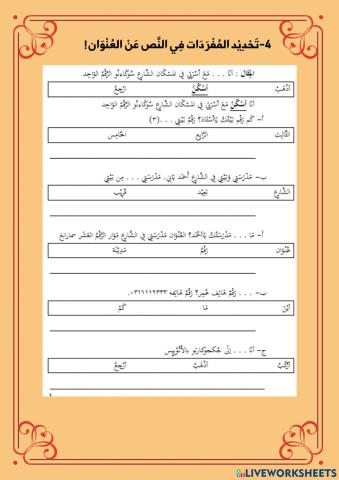 4-تَحْدِيْد المُفْرَدَات فِي النَّص عَنْ العُنْوَان!
المِثَال : أَنَا ... مَعَ أُسْرَتِي فِي المَسْكَان الشَّارِع سُوْكَارْنُو الرَّقْمُ الوَاحِد
أَذْهَبُ أَسْكُنُ ارْجِعُ
أَنَا أَسْكُنُ مَعَ أُسْرَتِي فِي المَسْكَان الشَّارِع سُوْكَارْنُو الرَّقْمُ الوَاحِد
أ- كَم رَقْمُ بَيْتُكَ يَاأُسْتَاذ؟ رَقْمُ بَيْتِي ...(٣)
الثَّالِث الرَّابِع الخَامِس
ب- مَدْرَسَتِي وَبَيْتِي فِي الشَّارِع أَحْمَد يَانِي. مَدْرَسَتِي ... مِن بَيْتِي
الشَّارِع بَعِيْد قَرِيْب
أ- مَا ... مَدْرَسَتُكَ يَاأَحْمَد؟ العُنْوَان مَدْرَسَتِي فِي الشَّارِع مَوَار الرَّقْمُ العَشَر سمارانغ
عُنْوَان رَقْمُ مَدِيْنَة
ب- ... رَقْمُ هَاتِف عُمَر؟ رَقْمُ هَاتِفِه ٠٣١٦١١٩٣٣٣.
أَيْنَ مَا كَمْ
ج- أَنَا ... إِلَى جُكْجَوكَارتَو بِالأُتُوْبِيْس
أَرْكَبُ أَذْهَبُ اَرْجِعُ
LIVEWORKSHEETS